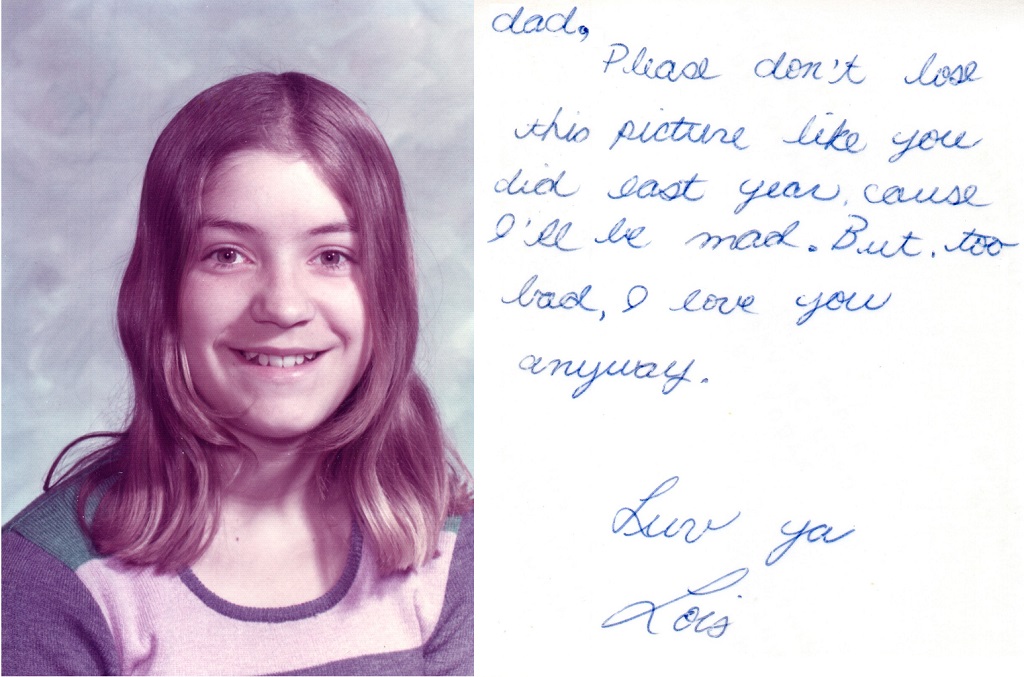 dad,
Please don't lose
this picture like you
did last year, cause
I'll be mad. But, too
bad, I love you
anyway.
Luv ya
Lois